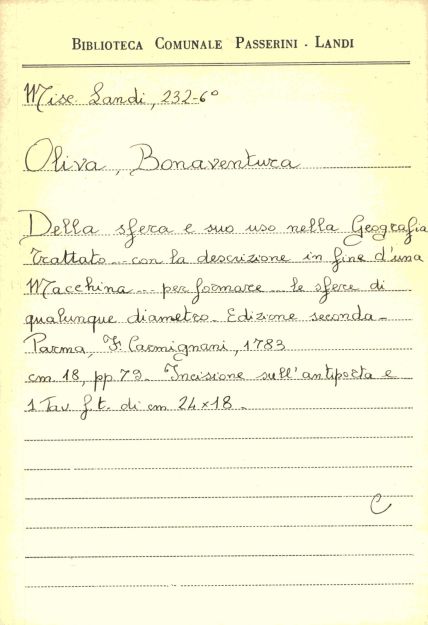 BIBLIOTECA COMUNALE PASSERINI - LANDI
Misc Landi, 232-6°
Oliva, Bonaventura
Della sfera e suo uso nella Geografia
Trattato... con la descrizione in fine d'una
Macchina... per formare... le sfere di
qualunque diametro. Edizione seconda-
Parma, F. Carmignani, 1783
cm 18, pp 79. Incisione sull'antiporta e
1 Tav f.t. di cm 24×18.
C